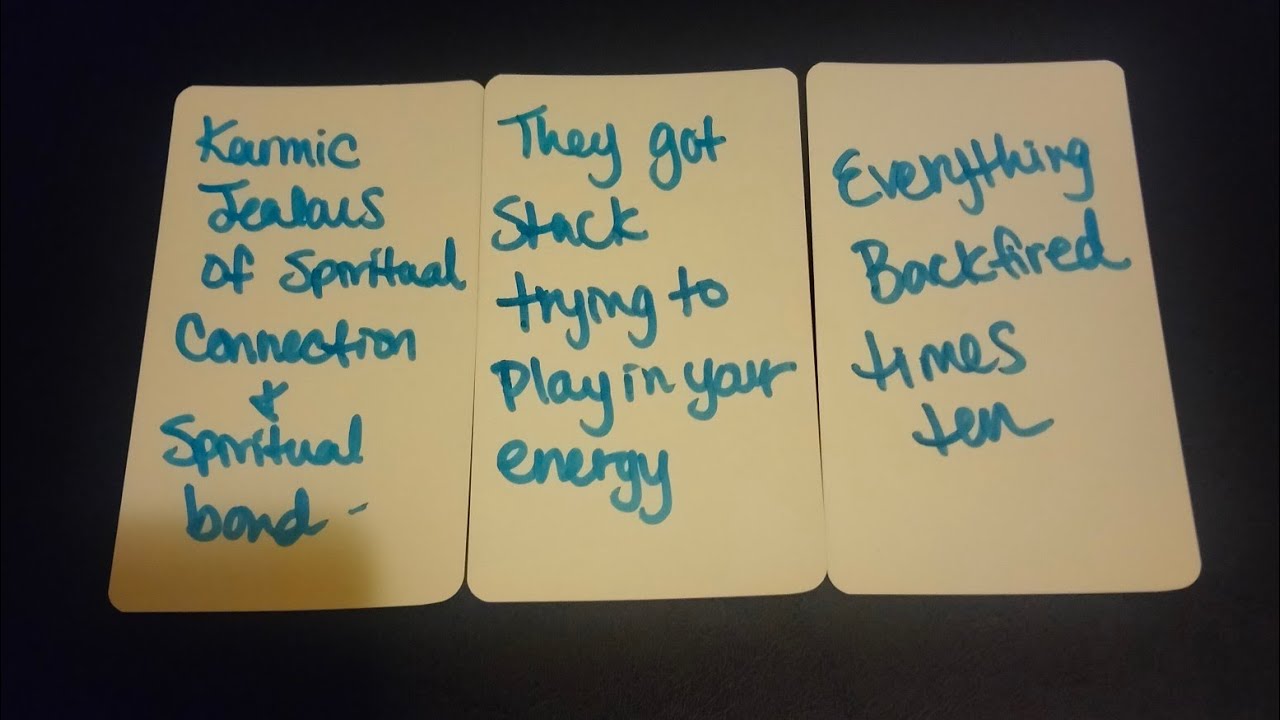 Karmic
Jealous
of Spiritual
Connection
&
Spiritual
bond -
They got
Stuck
trying to
Play in your
energy
Everything
Backfired
times
ten